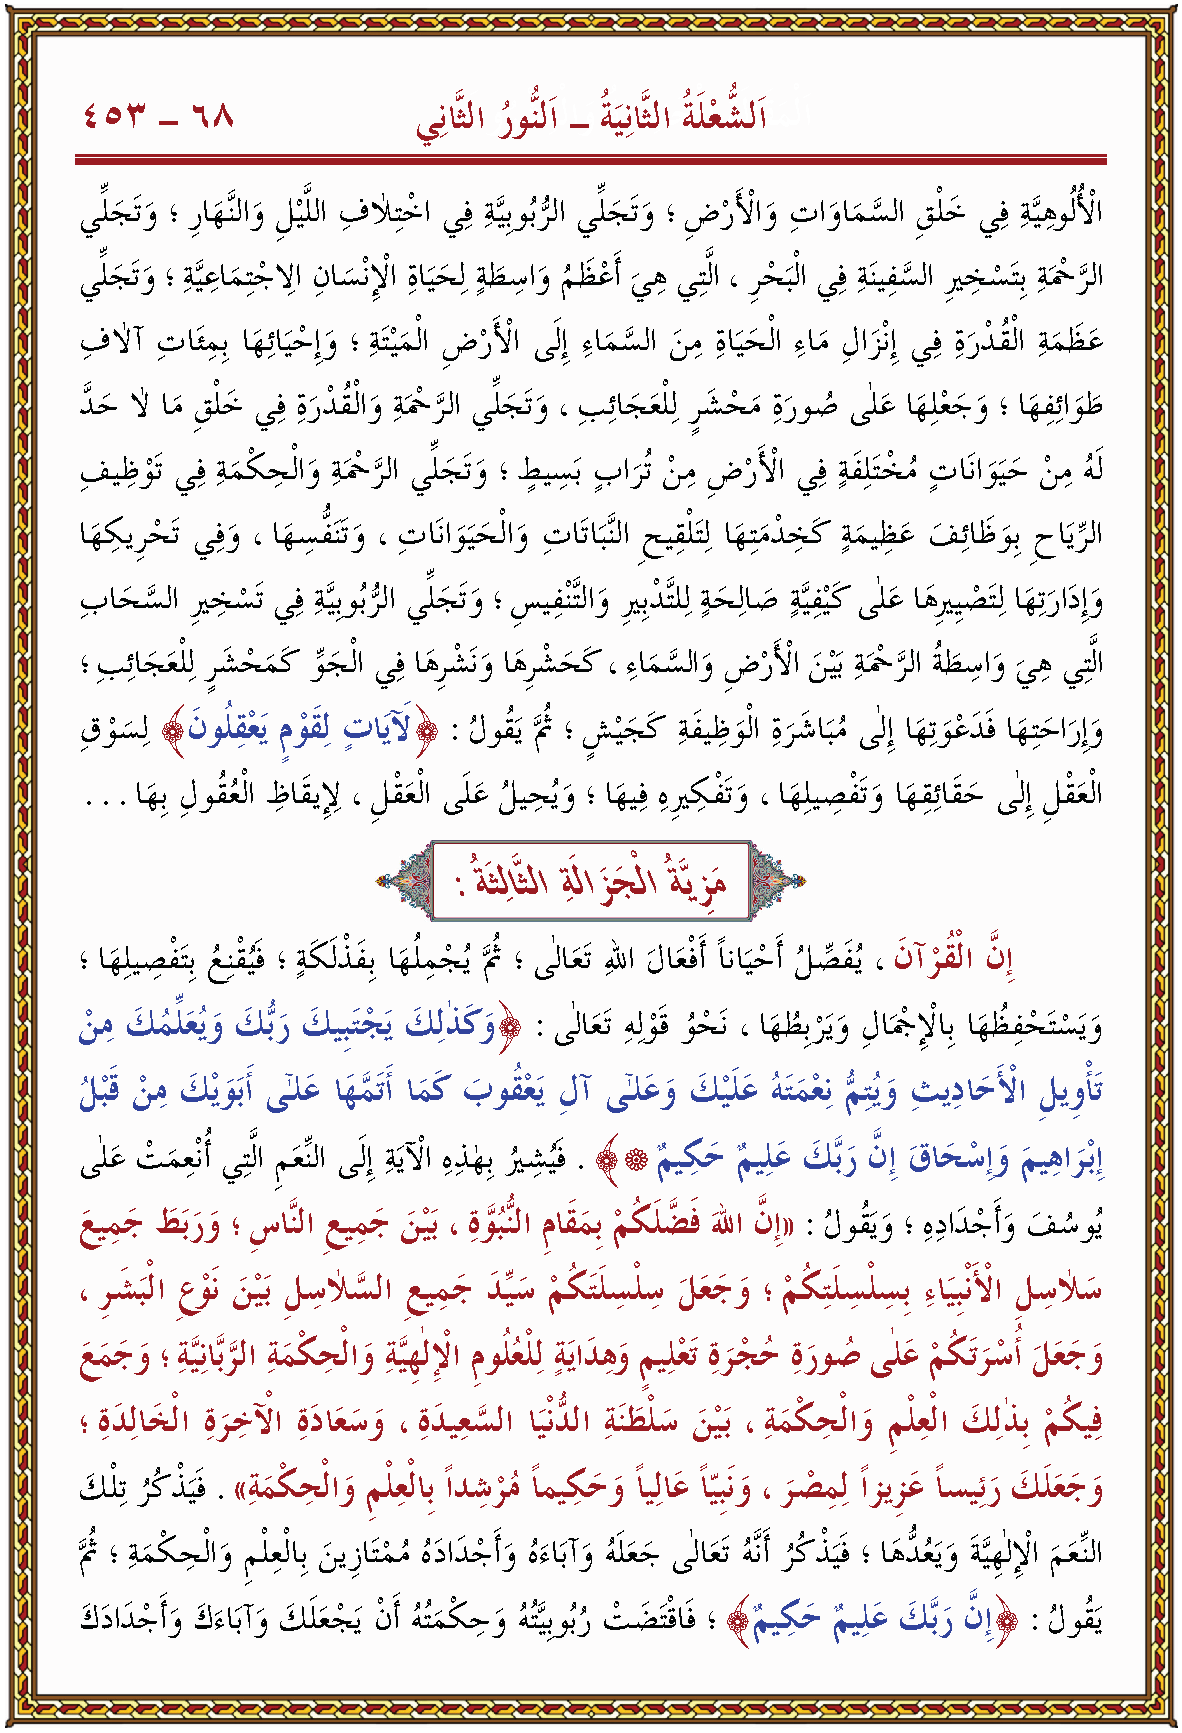 اَلشُّعْلَةُ الثَّانِيَةُ ـ اَلنُّورُ الثَّانِي ٦٨ ـ ٤٥٣
الْأُلُوهِيَّةِ فِي خَلْقِ السَّمَاوَاتِ وَالْأَرْضِ ؛ وَتَجَلِّي الرُّبُوبِيَّةِ فِي اخْتِلَافِ اللَّيْلِ وَالنَّهَارِ ؛ وَتَجَلِّي
الرَّحْمَةِ بِتَسْخِيرِ السَّفِينَةِ فِي الْبَحْرِ ، الَّتِي هِيَ أَعْظَمُ وَاسِطَةٍ لِحَيَاةِ الْإِنْسَانِ الِاجْتِمَاعِيَّةِ ؛ وَتَجَلِّي
عَظَمَةِ الْقُدْرَةِ فِي إِنْزَالِ مَاءِ الْحَيَاةِ مِنَ السَّمَاءِ إِلَى الْأَرْضِ الْمَيْتَةِ ؛ وَإِحْيَائِهَا بِمِئَاتِ آلَافِ
طَوَائِفِهَا ؛ وَجَعْلِهَا عَلٰى صُورَةِ مَحْشَرٍ لِلْعَجَائِبِ ، وَتَجَلِّي الرَّحْمَةِ وَالْقُدْرَةِ فِي خَلْقِ مَا لَا حَدَّ
لَهُ مِنْ حَيَوَانَاتٍ مُخْتَلِفَةٍ فِي الْأَرْضِ مِنْ تُرَابٍ بَسِيطٍ ؛ وَتَجَلِّي الرَّحْمَةِ وَالْحِكْمَةِ فِي تَوْظِيفِ
الرِّيَاحِ بِوَظَائِفَ عَظِيمَةٍ كَخِدْمَتِهَا لِتَلْقِيحِ النَّبَاتَاتِ وَالْحَيَوَانَاتِ ، وَتَنَفُّسِهَا ، وَفِي تَحْرِيكِهَا
وَإِدَارَتِهَا لِتَصْيِيرِهَا عَلٰى كَيْفِيَّةٍ صَالِحَةٍ لِلتَّدْبِيرِ وَالتَّنْفِيسِ ؛ وَتَجَلِّي الرُّبُوبِيَّةِ فِي تَسْخِيرِ السَّحَابِ
الَّتِي هِيَ وَاسِطَةُ الرَّحْمَةِ بَيْنَ الْأَرْضِ وَالسَّمَاءِ ، كَحَشْرِهَا وَنَشْرِهَا فِي الْجَوِّ كَمَحْشَرٍ لِلْعَجَائِبِ ؛
وَإِرَاحَتِهَا فَدَعْوَتِهَا إِلٰى مُبَاشَرَةِ الْوَظِيفَةِ كَجَيْشٍ ؛ ثُمَّ يَقُولُ : ﴿لَآيَاتٍ لِقَوْمٍ يَعْقِلُونَ﴾ لِسَوْقِ
الْعَقْلِ إِلٰى حَقَائِقِهَا وَتَفْصِيلِهَا ، وَتَفْكِيرِهِ فِيهَا ؛ وَيُحِيلُ عَلَى الْعَقْلِ ، لِإِيقَاظِ الْعُقُولِ بِهَا . . .
مَزِيَّةُ الْجَزَالَةِ الثَّالِثَةُ :
إِنَّ الْقُرْآنَ ، يُفَصِّلُ أَحْيَاناً أَفْعَالَ اللهِ تَعَالٰى ؛ ثُمَّ يُجْمِلُهَا بِفَذْلَكَةٍ ؛ فَيُقْنِعُ بِتَفْصِيلِهَا ؛
وَيَسْتَحْفِظُهَا بِالْإِجْمَالِ وَيَرْبِطُهَا ، نَحْوُ قَوْلِهِ تَعَالٰى : ﴿وَكَذٰلِكَ يَجْتَبِيكَ رَبُّكَ وَيُعَلِّمُكَ مِنْ
تَأْوِيلِ الْأَحَادِيثِ وَيُتِمُّ نِعْمَتَهُ عَلَيْكَ وَعَلٰٓى آلِ يَعْقُوبَ كَمَا أَتَمَّهَا عَلٰٓى أَبَوَيْكَ مِنْ قَبْلُ
إِبْرَاهِيمَ وَإِسْحَاقَ إِنَّ رَبَّكَ عَلِيمٌ حَكِيمٌ ۞﴾ . فَيُشِيرُ بِهٰذِهِ الْآيَةِ إِلَى النِّعَمِ الَّتِي أُنْعِمَتْ عَلٰى
يُوسُفَ وَأَجْدَادِهِ ؛ وَيَقُولُ : «إِنَّ اللهَ فَضَّلَكُمْ بِمَقَامِ النُّبُوَّةِ ، بَيْنَ جَمِيعِ النَّاسِ ؛ وَرَبَطَ جَمِيعَ
سَلَاسِلِ الْأَنْبِيَاءِ بِسِلْسِلَتِكُمْ ؛ وَجَعَلَ سِلْسِلَتَكُمْ سَيِّدَ جَمِيعِ السَّلَاسِلِ بَيْنَ نَوْعِ الْبَشَرِ ،
وَجَعَلَ أُسْرَتَكُمْ عَلٰى صُورَةِ حُجْرَةِ تَعْلِيمٍ وَهِدَايَةٍ لِلْعُلُومِ الْإِلٰهِيَّةِ وَالْحِكْمَةِ الرَّبَّانِيَّةِ ؛ وَجَمَعَ
فِيكُمْ بِذٰلِكَ الْعِلْمِ وَالْحِكْمَةِ ، بَيْنَ سَلْطَنَةِ الدُّنْيَا السَّعِيدَةِ ، وَسَعَادَةِ الْآخِرَةِ الْخَالِدَةِ ؛
وَجَعَلَكَ رَئِيساً عَزِيزاً لِمِصْرَ ، وَنَبِيّاً عَالِياً وَحَكِيماً مُرْشِداً بِالْعِلْمِ وَالْحِكْمَةِ» . فَيَذْكُرُ تِلْكَ
النِّعَمَ الْإِلٰهِيَّةَ وَيَعُدُّهَا ؛ فَيَذْكُرُ أَنَّهُ تَعَالٰى جَعَلَهُ وَآبَاءَهُ وَأَجْدَادَهُ مُمْتَازِينَ بِالْعِلْمِ وَالْحِكْمَةِ ؛ ثُمَّ
يَقُولُ : ﴿إِنَّ رَبَّكَ عَلِيمٌ حَكِيمٌ﴾ ؛ فَاقْتَضَتْ رُبُوبِيَّتُهُ وَحِكْمَتُهُ أَنْ يَجْعَلَكَ وَآبَاءَكَ وَأَجْدَادَكَ